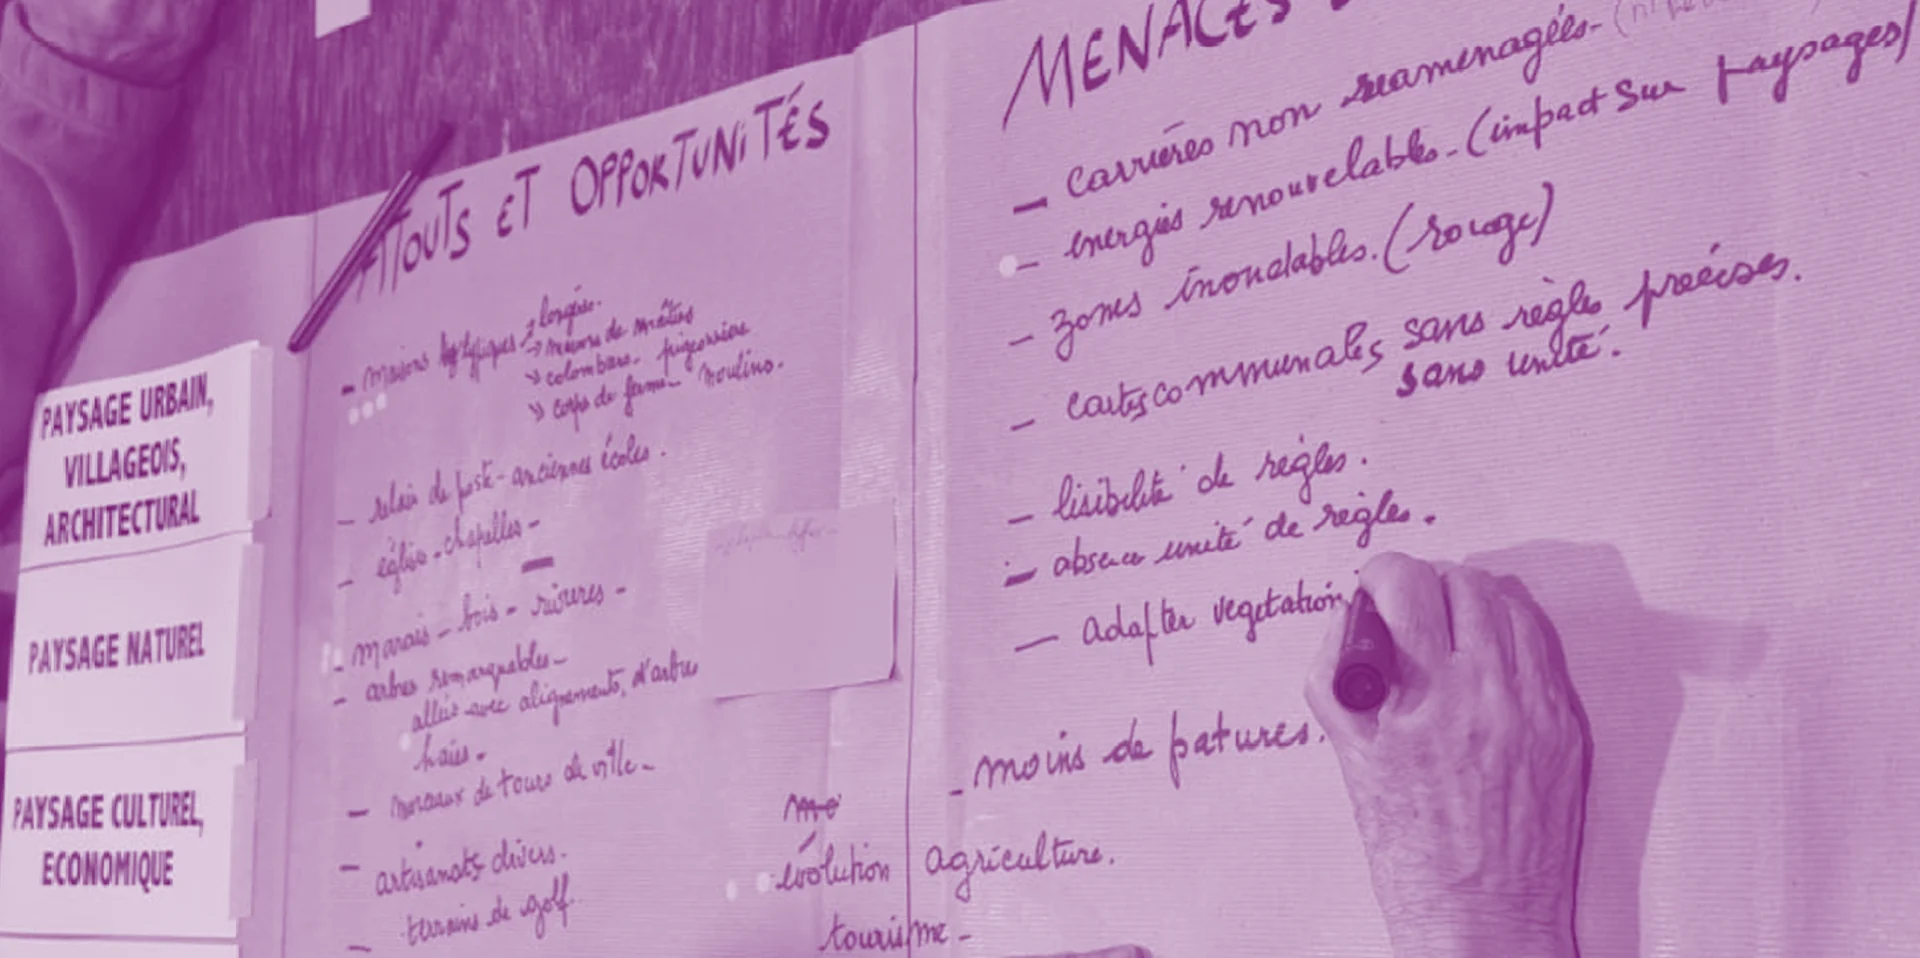 PAYSAGE URBAIN,
VILLAGEOIS,
ARCHITECTURAL
PAYSAGE NATUREL
PAYSAGE CULTUREL,
ECONOMIQUE
ATOUTS ET OPPORTUNITÉS
- maisons typiques → longère.
→ maisons de maîtres
→ colombars - pigeonniers
→ corps de ferme - moulins.
- relais de poste - anciennes écoles.
- église - chapelles -
- marais - bois - rivières -
- arbres remarquables -
allées avec alignements, d'arbres
haies -
- morceaux de tours de ville -
- artisanats divers.
- terrains de golf.
MENACES
- Carrières non reamenagées - (
- energies renouvelables - (impact sur paysages)
- zones inondables. (rouge)
- cartes communales sans règles précises.
sans unité.
- lisibilité de règles.
- absence unité de règles.
- Adapter vegetation
- moins de patures.
évolution agriculture.
tourisme -